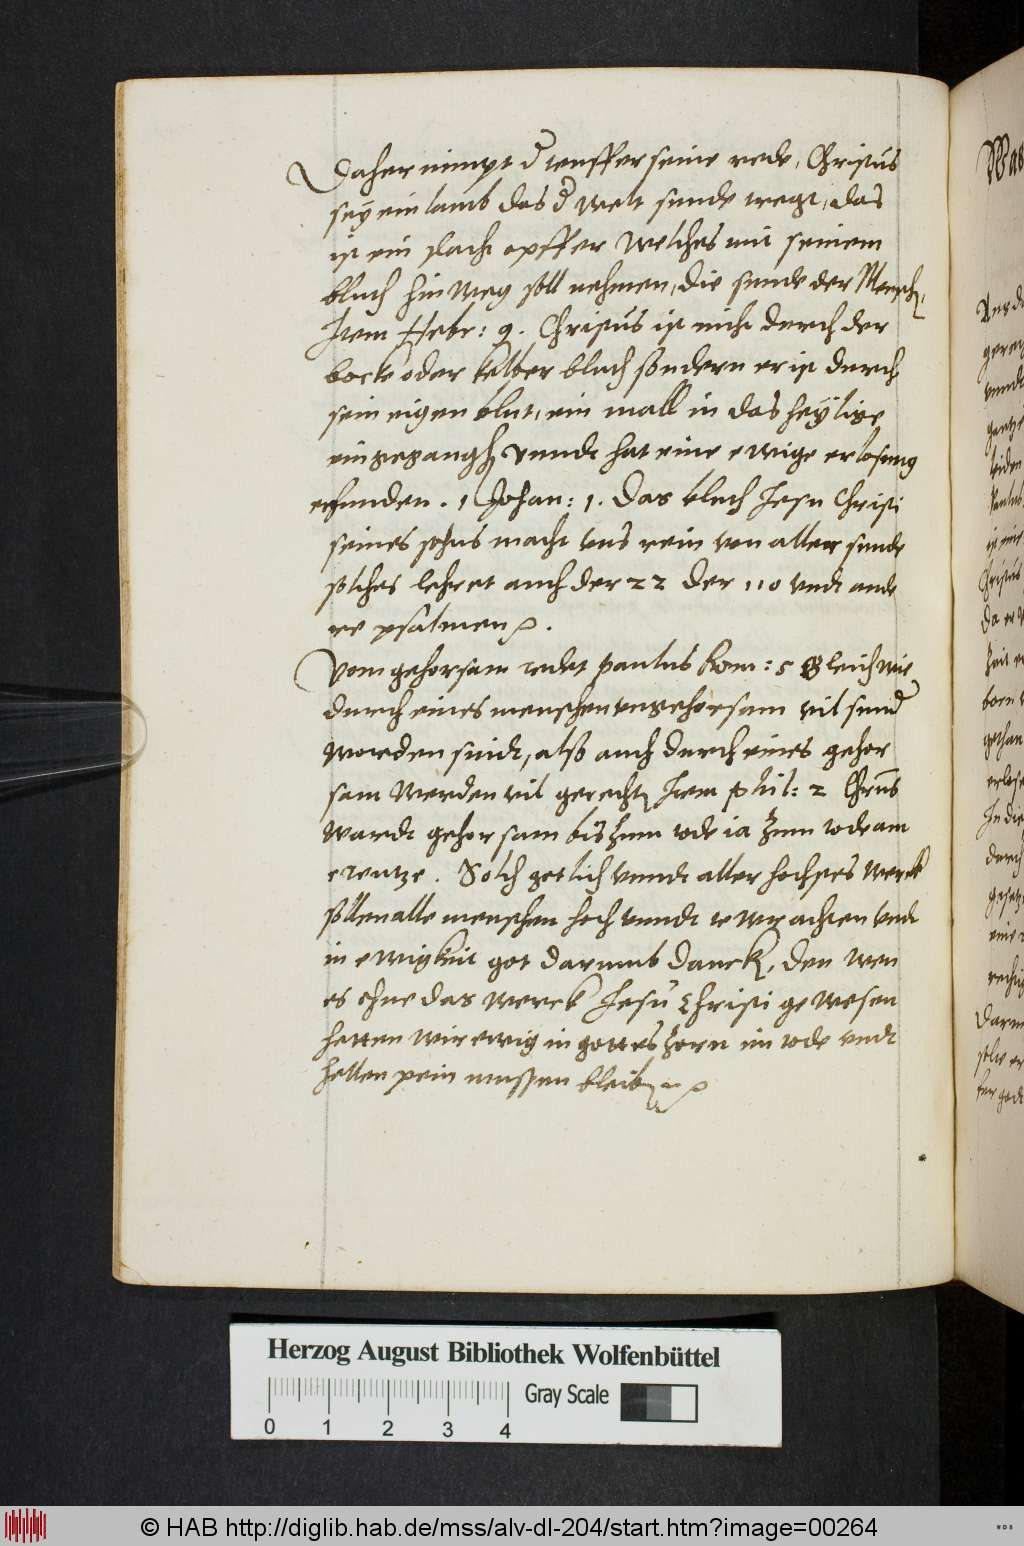 Daher nimpt d teuffer seine rede, Christus
sey ein lamb das d welt sunde tregt, das
ist ein slacht opffer welches mit seinem
bluth hin weg soll nehmen, die sunde der Mensch.
Item Hebr: 9. Christus ist nicht durch der
bocke oder kelber bluth sondern er ist durch
sein eigen blut, ein mall in das heylige
eingegangh vnndt hat eine ewige erlosung
erfunden. 1 Johan: 1. Das bluth Jesu Christi
seines sohns macht vns rein von aller sunde
solches lehret auch der 22 der 110 vndt ande
re psalmen.
Vom gehorsam redet paulus Rom: 5 Gleich wie
durch eines menschen vngehorsam vil sund
worden sindt, alß auch durch eines gehor
sam werden vil gerecht, Item phil: 2 Chrus
wardt gehorsam biß zum tode ia zum tode am
creutze. Solch gotlich vnndt aller hochstes werck
sollen alle menschen hoch vnndt tewr achten vndt
in ewigkeit got darumb danck, den wen
es ohne das werck Jesu Christi gewesen
hetten wir ewig in gottes zorn im tode vndt
hellen pein mussen bleib
Herzog August Bibliothek Wolfenbüttel
Gray Scale
0 1 2 3 4
© HAB http://diglib.hab.de/mss/alv-dl-204/start.htm?image=00264